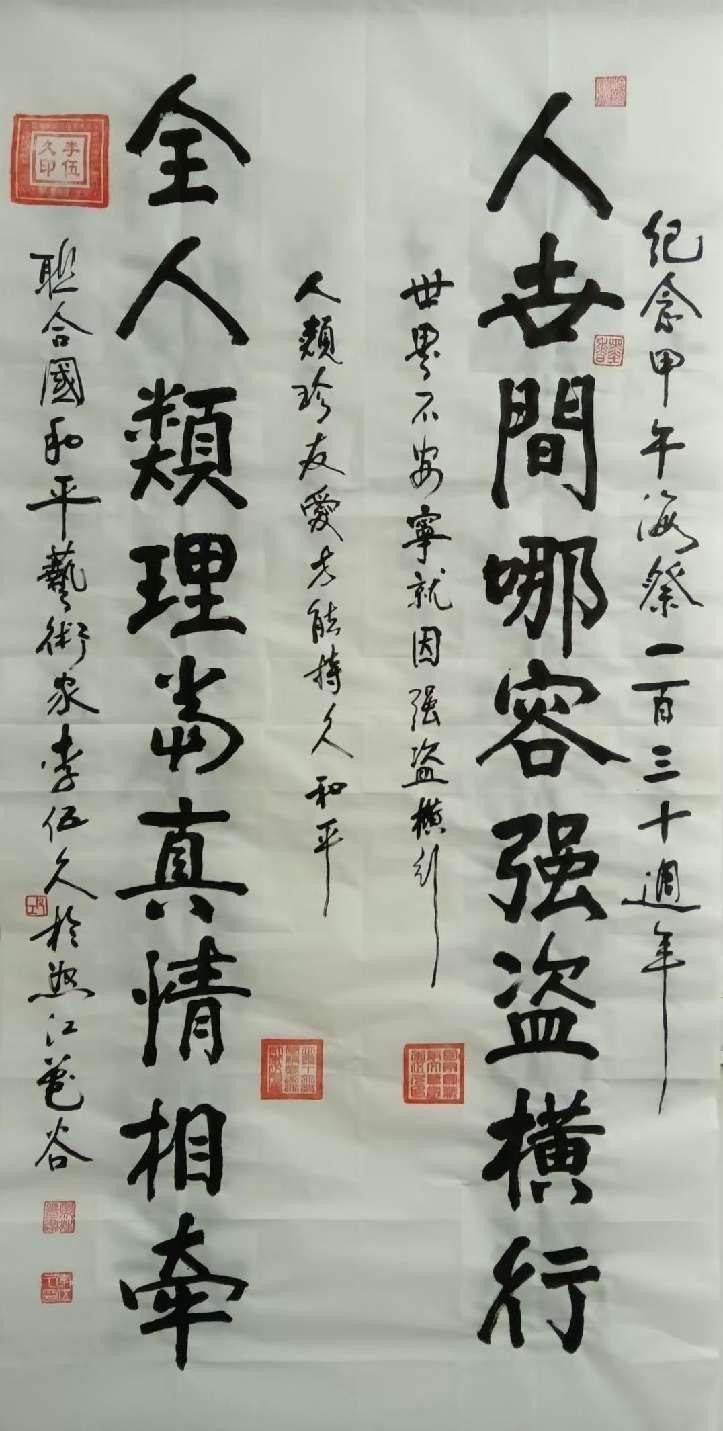 纪念甲午海祭一百三十週年
人世間哪容强盗横行
世界不安寧就因强盗横行
人類珍友愛才能持久和平
全人類理当真情相牵
聯合國和平藝術家李伍久於怒江花谷
李伍久印